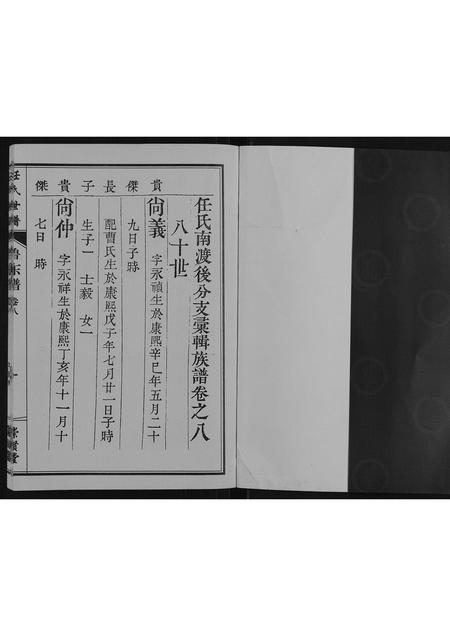 任氏南渡後分支彙輯族譜卷之八
八十世
貴傑長子
尙義 字永禎生於康熙辛巳年五月二十
九日子時
配曹氏生於康熙戊子年七月廿一日子時
生子一 士毅 女一
貴傑
尙仲 字永祥生於康熙丁亥年十一月十
七日 時
任氏世譜
魯東譜 卷八
一